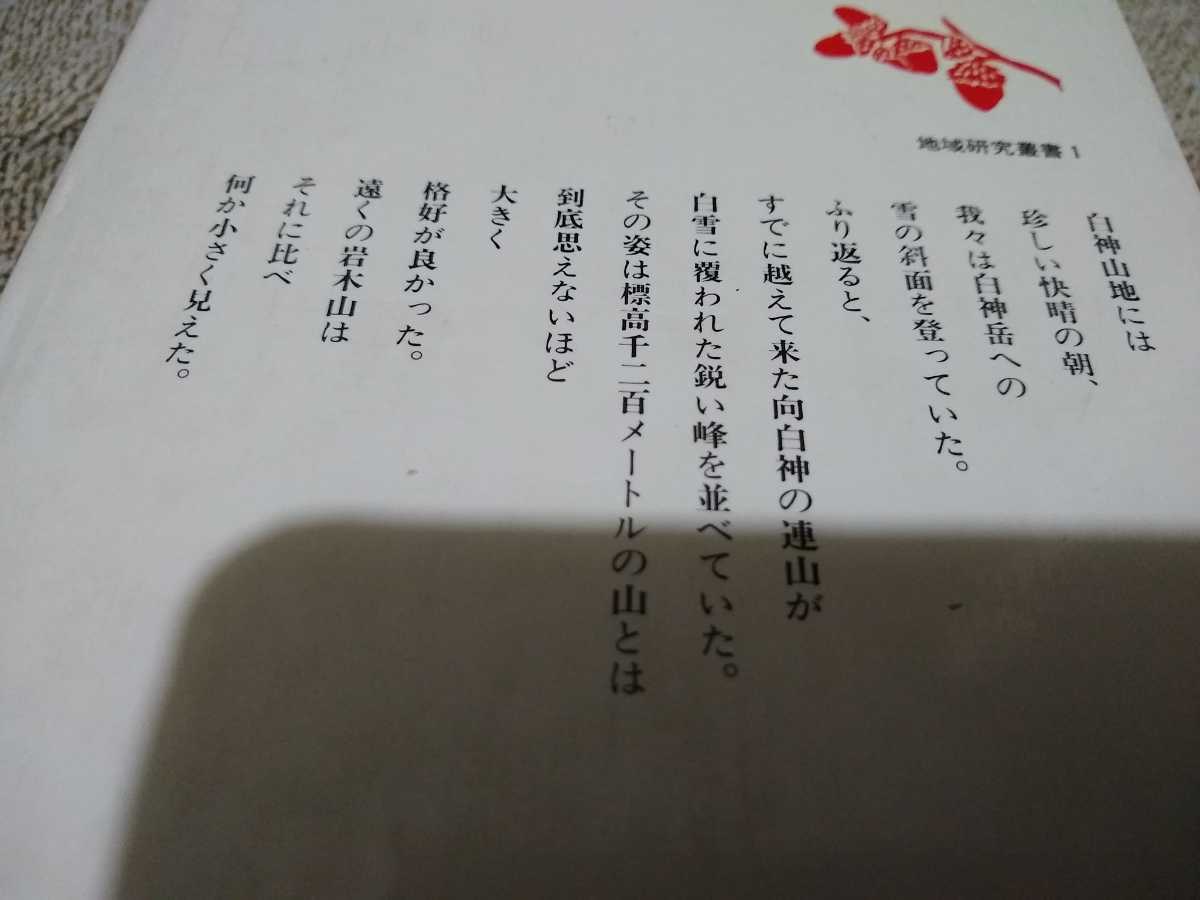 地域研究叢書1
白神山地には
珍しい快晴の朝、
我々は白神岳への
雪の斜面を登っていた。
ふり返ると、
すでに越えて来た向白神の連山が
白雪に覆われた鋭い峰を並べていた。
その姿は標高千二百メートルの山とは
到底思えないほど
大きく
格好が良かった。
遠くの岩木山は
それに比べ
何か小さく見えた。